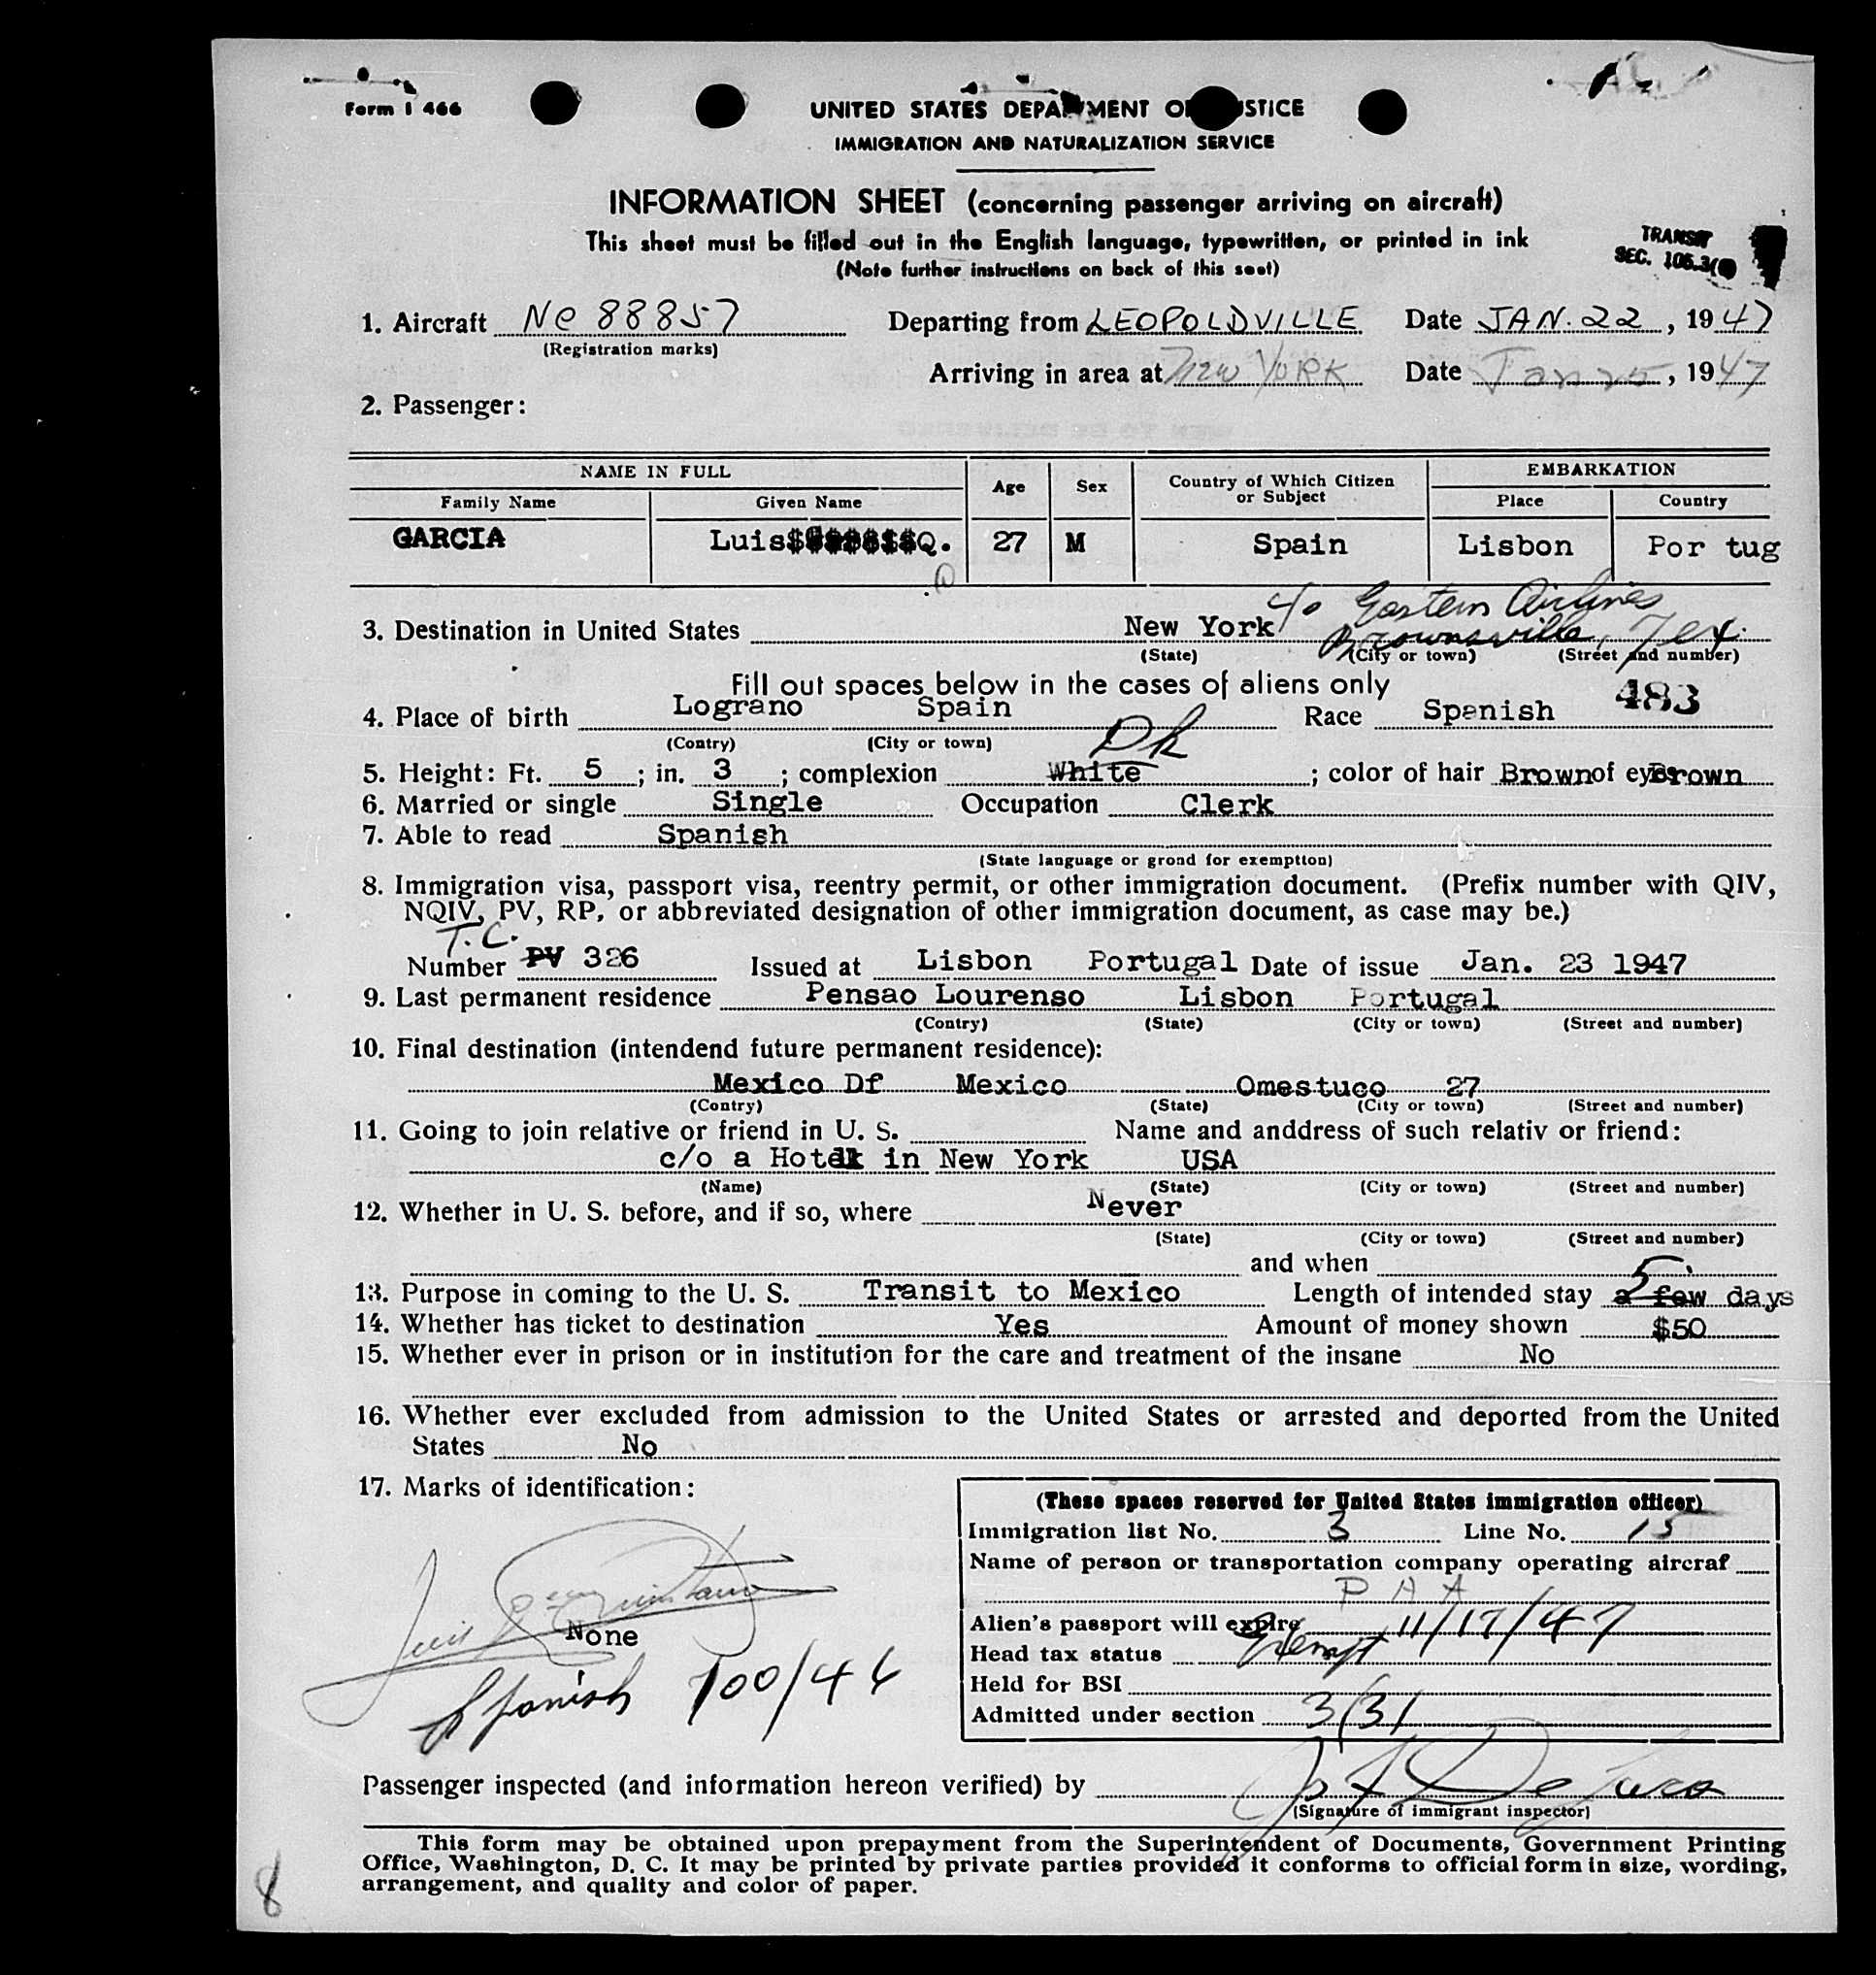 Form I 466
UNITED STATES DEPA MENT O STICE
IMMIGRATION AND NATURALIZATION SERVICE
INFORMATION SHEET (concerning passenger arriving on aircraft)
This sheet must be filled out in the English language, typewritten, or printed in ink
(Note further instructions on back of this seet)
TRANSIT
SEC. 105.3(
1. Aircraft Nc 88857 Departing from LEOPOLDVILLE Date JAN. 22, 1947
(Registration marks)
Arriving in area at New YORK Date Jan 25, 1947
2. Passenger:
NAME IN FULL Age Sex Country of Which Citizen or Subject EMBARKATION
Family Name Given Name Place Country
GARCIA Luis Q. 27 M Spain Lisbon Por tug
c/o Eastern Airlines
3. Destination in United States New York Brownsville, Tex.
(State) (City or town) (Street and number)
Fill out spaces below in the cases of aliens only
483
4. Place of birth Lograno Spain Race Spanish
(Contry) (City or town)
Dk
5. Height: Ft. 5 ; in. 3 ; complexion White ; color of hair Brown of eyes Brown
6. Married or single Single Occupation Clerk
7. Able to read Spanish
(State language or grond for exemption)
8. Immigration visa, passport visa, reentry permit, or other immigration document. (Prefix number with QIV,
NQIV, PV, RP, or abbreviated designation of other immigration document, as case may be.)
T.C.
Number PV 326 Issued at Lisbon Portugal Date of issue Jan. 23 1947
9. Last permanent residence Pensao Lourenso Lisbon Portugal
(Contry) (State) (City or town) (Street and number)
10. Final destination (intendend future permanent residence):
Mexico Df Mexico Omestuco 27
(Contry) (State) (City or town) (Street and number)
11. Going to join relative or friend in U. S. Name and anddress of such relativ or friend:
c/o a Hotel in New York USA
(Name) (State) (City or town) (Street and number)
12. Whether in U. S. before, and if so, where Never
(State) (City or town) (Street and number)
and when
5
13. Purpose in coming to the U. S. Transit to Mexico Length of intended stay a few days
14. Whether has ticket to destination Yes Amount of money shown $50
15. Whether ever in prison or in institution for the care and treatment of the insane No
16. Whether ever excluded from admission to the United States or arrested and deported from the United
States No
17. Marks of identification:
None
Spanish 700/46
(These spaces reserved for United States immigration officer)
Immigration list No. 3 Line No. 15
Name of person or transportation company operating aircraf
P A A
Alien's passport will expire 11/17/47
Head tax status Exempt
Held for BSI
Admitted under section 3(3)
Passenger inspected (and information hereon verified) by
(Signature of immigrant inspector)
This form may be obtained upon prepayment from the Superintendent of Documents, Government Printing
Office, Washington, D. C. It may be printed by private parties provided it conforms to official form in size, wording,
arrangement, and quality and color of paper.
8